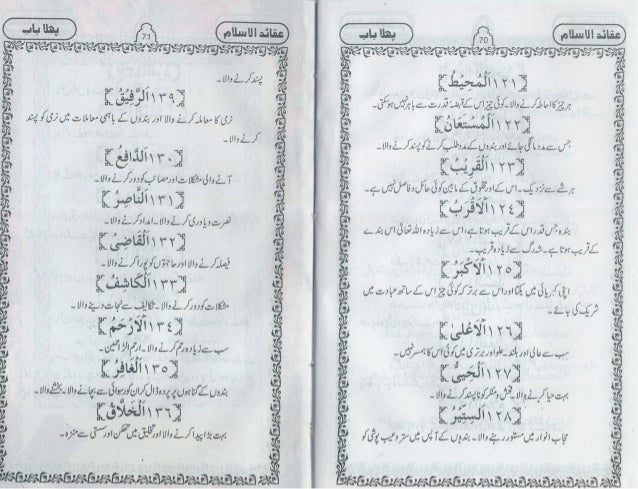 عقائد الاسلام
70
پھلا باب
﴿۱۲۱﴾ اَلْمُحِيْطُ
ہر چیز کا احاطہ کرنے والا۔ کوئی چیز اس کے قبضہ قدرت سے باہر نہیں ہو سکتی۔
﴿۱۲۲﴾ اَلْمُسْتَعَانُ
جس سے مدد مانگی جائے اور بندوں کے مدد طلب کرنے کو پسند کرنے والا۔
﴿۱۲۳﴾ اَلْقَرِيْبُ
ہر شے سے نزدیک۔ اس کے اور مخلوق کے مابین کوئی حائل و فاصل نہیں ہے۔
﴿۱۲٤﴾ اَلْاَقْرَبُ
بندہ جس قدر اس کے قریب ہوتا ہے، اس سے زیادہ اللہ تعالی اس بندے
کے قریب ہوتا ہے۔ شہ رگ سے زیادہ قریب۔
﴿۱۲۵﴾ اَلْاَكْبَرُ
اپنی کبریائی میں یکتا اور اس سے برتر کہ کوئی چیز اس کے ساتھ عبادت میں
شریک کی جائے۔
﴿۱۲٦﴾ اَلْاَعْلىٰ
سب سے عالی اور بلند۔ علو اور برتری میں کوئی اس کا ہمسر نہیں۔
﴿۱۲۷﴾ اَلْحَيِىُّ
بہت حیا کرنے والا۔ فحش و منکر کو ناپسند کرنے والا۔
﴿۱۲۸﴾ اَلسِّتِيْرُ
حجاب انوار میں مستور رہنے والا۔ بندوں کے آپس میں ستر و عیب پوشی کو
عقائد الاسلام
71
پھلا باب
پسند کرنے والا۔
﴿۱۳۹﴾ اَلرَّفِيْقُ
نرمی کا معاملہ کرنے والا اور بندوں کے باہمی معاملات میں نرمی کو پسند
کرنے والا۔
﴿۱۳۰﴾ اَلدَّافِعُ
آنے والی مشکلات اور مصائب کو دور کرنے والا۔
﴿۱۳۱﴾ اَلنَّاصِرُ
نصرت و یاوری کرنے والا۔ امداد کرنے والا۔
﴿۱۳۲﴾ اَلْقَاضِىُ
فیصلہ کرنے والا اور حاجتوں کو پورا کرنے والا۔
﴿۱۳۳﴾ اَلْكَاشِفُ
مشکلات کو دور کرنے والا۔ تکالیف سے نجات دینے والا۔
﴿۱۳٤﴾ اَلْاَرْحَمُ
سب سے زیادہ رحم کرنے والا۔ ارحم الراحمین۔
﴿۱۳۵﴾ اَلْغَافِرُ
بندوں کے گناہوں پر پردہ ڈال کر ان کو رسوائی سے بچانے والا۔ بخشنے والا۔
﴿۱۳٦﴾ اَلْخَلَّاقُ
بہت بڑا پیدا کرنے والا اور تخلیق میں تھکن اور سستی سے منزہ۔